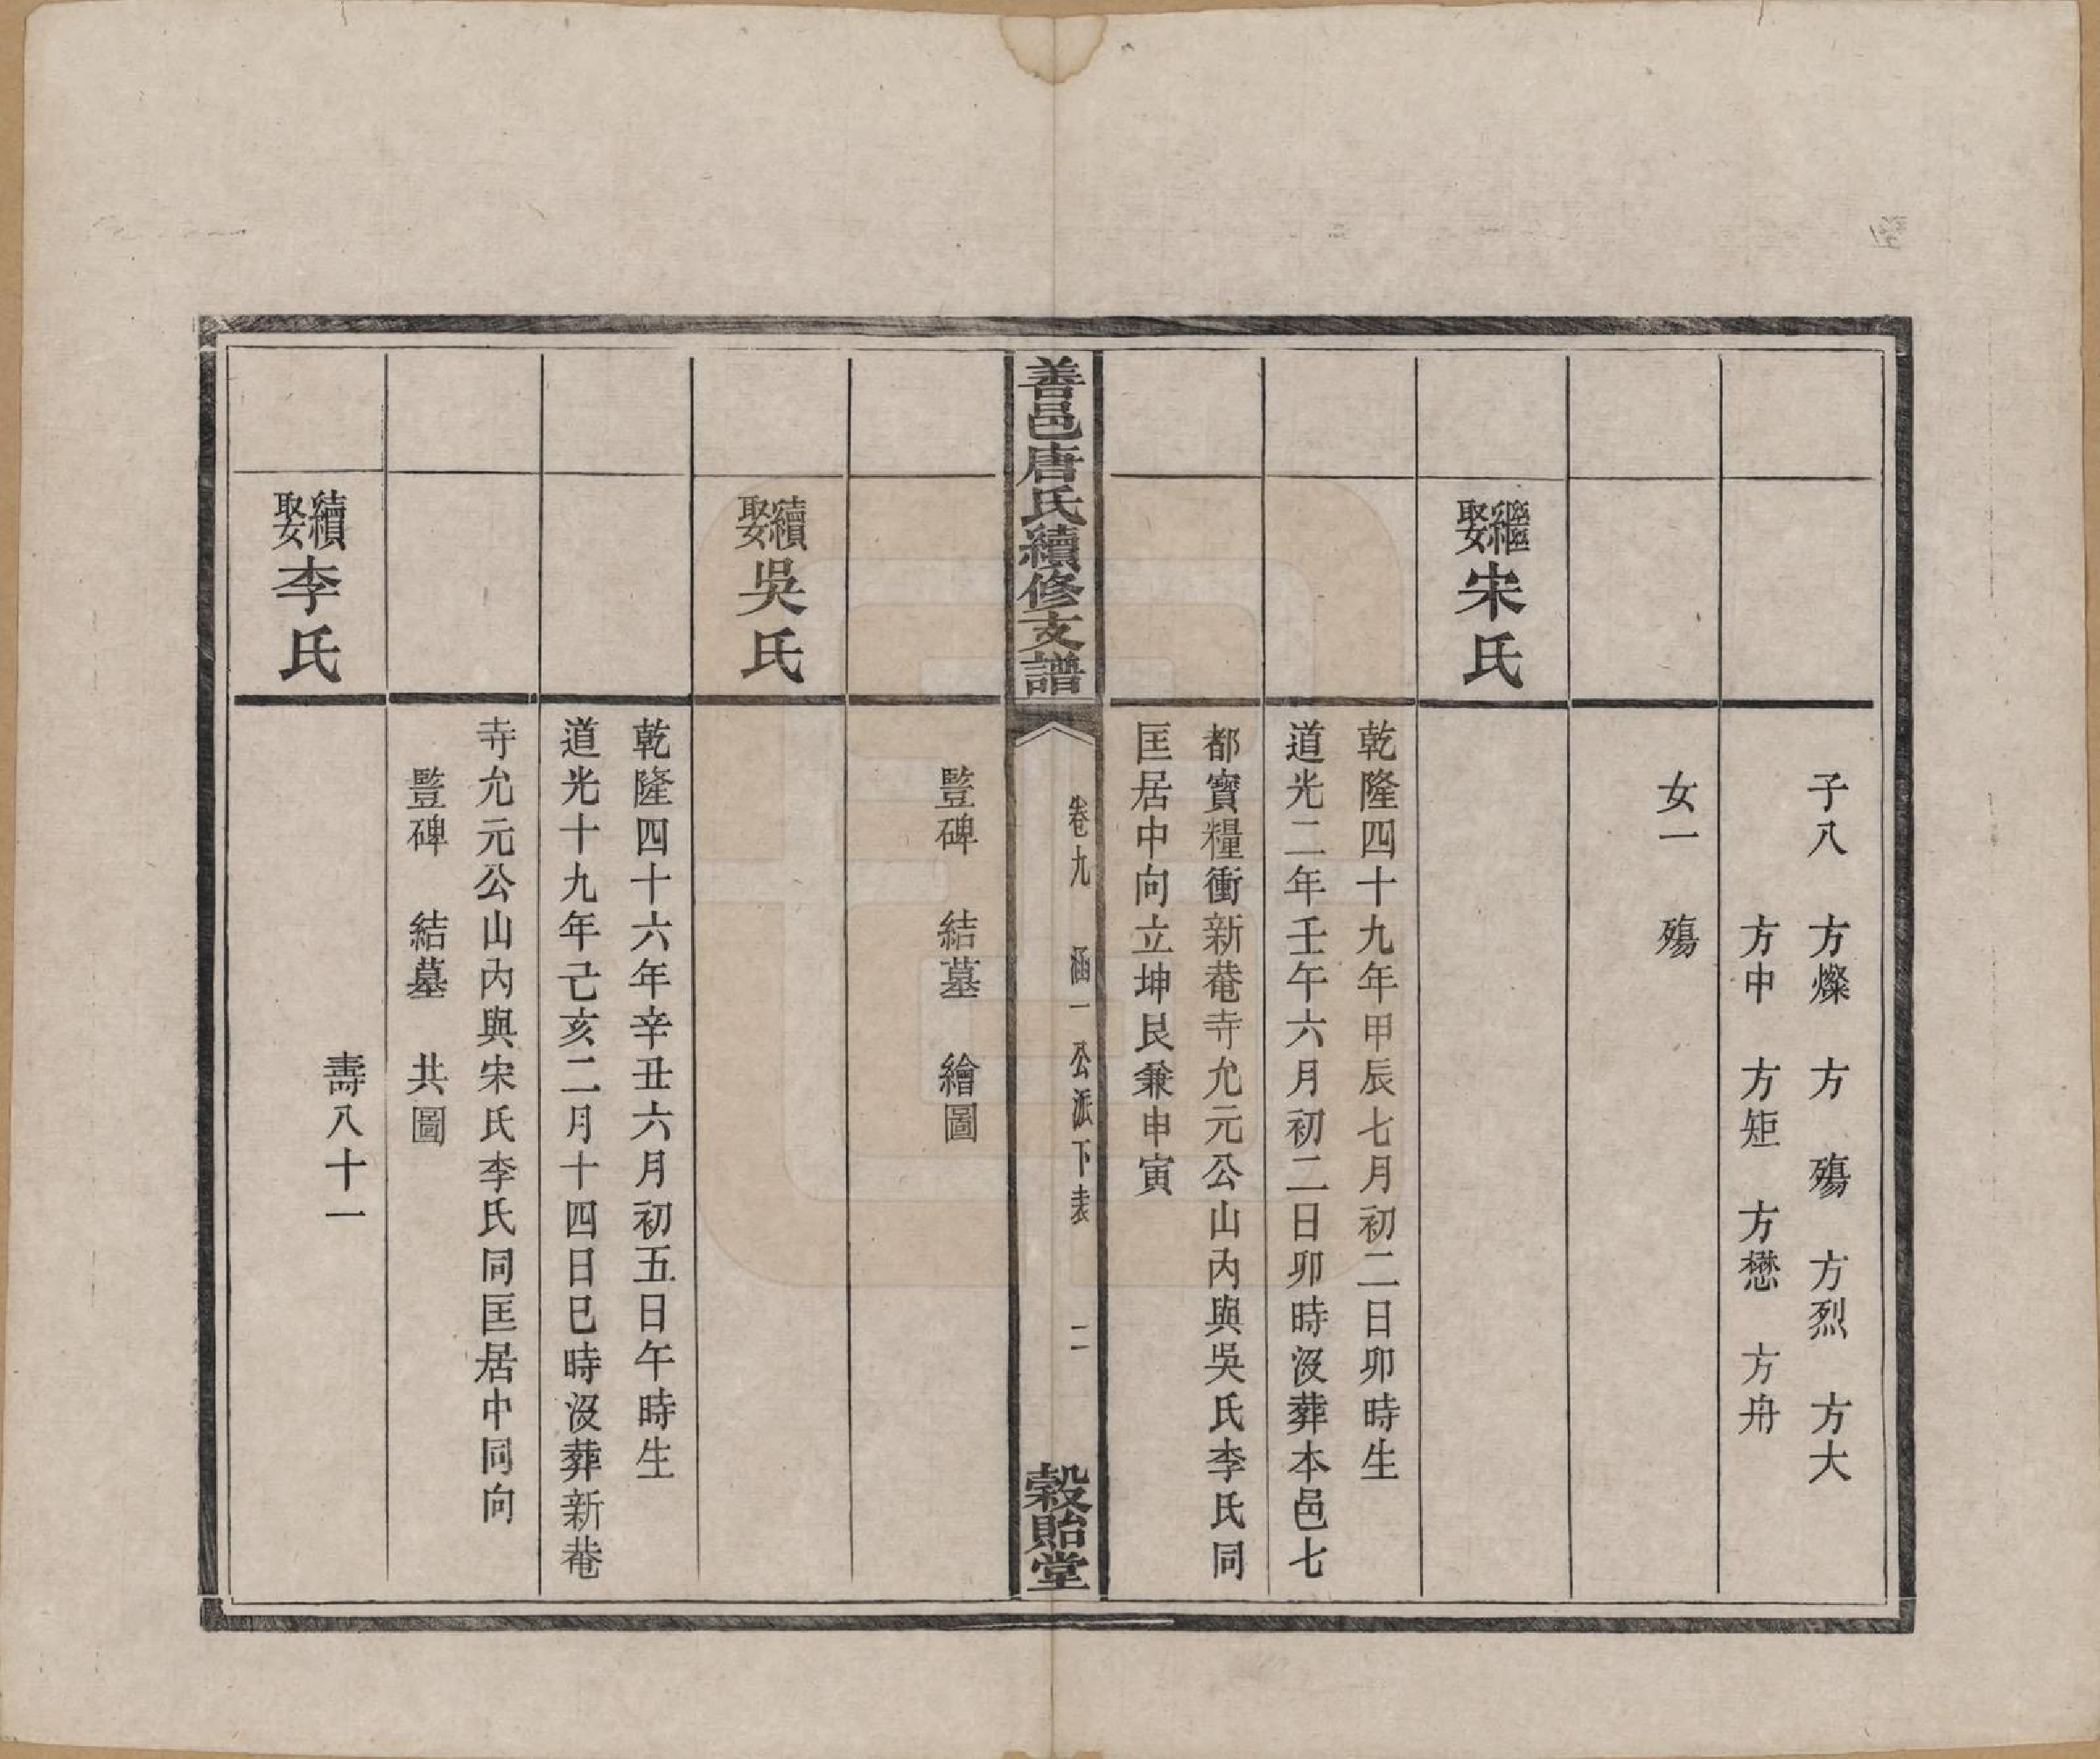 子八　方燦　方　殤　方烈　方大
方中　方矩　方懋　方舟
女一　殤
繼娶宋氏
乾隆四十九年甲辰七月初二日卯時生
道光二年壬午六月初二日卯時沒葬本邑七
都寶糧衝新菴寺允元公山內與吳氏李氏同
匡居中向立坤艮兼申寅
善邑唐氏續修支譜
卷九　涵一公派下表　二
榖貽堂
豎碑　結墓　繪圖
續娶吳氏
乾隆四十六年辛丑六月初五日午時生
道光十九年己亥二月十四日巳時沒葬新菴
寺允元公山內與宋氏李氏同匡居中同向
豎碑　結墓　共圖
續娶李氏
壽八十一